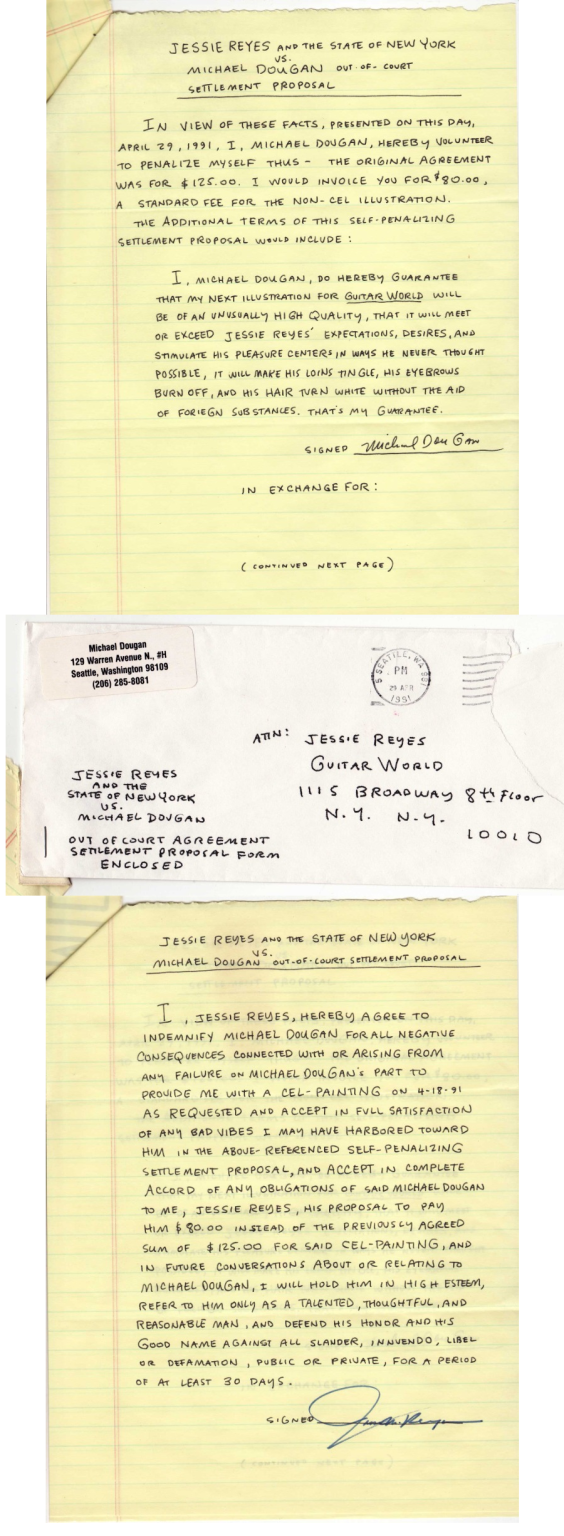 JESSIE REYES AND THE STATE OF NEW YORK
VS.
MICHAEL DOUGAN OUT-OF-COURT
SETTLEMENT PROPOSAL
IN VIEW OF THESE FACTS, PRESENTED ON THIS DAY,
APRIL 29, 1991, I, MICHAEL DOUGAN, HEREBY VOLUNTEER
TO PENALIZE MYSELF THUS - THE ORIGINAL AGREEMENT
WAS FOR $125.00. I WOULD INVOICE YOU FOR $80.00,
A STANDARD FEE FOR THE NON-CEL ILLUSTRATION.
THE ADDITIONAL TERMS OF THIS SELF-PENALIZING
SETTLEMENT PROPOSAL WOULD INCLUDE:
I, MICHAEL DOUGAN, DO HEREBY GUARANTEE
THAT MY NEXT ILLUSTRATION FOR GUITAR WORLD WILL
BE OF AN UNUSUALLY HIGH QUALITY, THAT IT WILL MEET
OR EXCEED JESSIE REYES' EXPECTATIONS, DESIRES, AND
STIMULATE HIS PLEASURE CENTERS IN WAYS HE NEVER THOUGHT
POSSIBLE, IT WILL MAKE HIS LOINS TINGLE, HIS EYEBROWS
BURN OFF, AND HIS HAIR TURN WHITE WITHOUT THE AID
OF FORIEGN SUBSTANCES. THAT'S MY GUARANTEE.
SIGNED Michael Dougan
IN EXCHANGE FOR:
(CONTINUED NEXT PAGE)
Michael Dougan
129 Warren Avenue N., #H
Seattle, Washington 98109
(206) 285-8081
SEATTLE, WA 981
PM
29 APR
1991
ATTN: JESSIE REYES
GUITAR WORLD
1115 BROADWAY 8th Floor
N.Y. N.Y.
10010
JESSIE REYES
AND THE
STATE OF NEW YORK
VS.
MICHAEL DOUGAN
OUT OF COURT AGREEMENT
SETTLEMENT PROPOSAL FORM
ENCLOSED
JESSIE REYES AND THE STATE OF NEW YORK
VS.
MICHAEL DOUGAN OUT-OF-COURT SETTLEMENT PROPOSAL
I, JESSIE REYES, HEREBY AGREE TO
INDEMNIFY MICHAEL DOUGAN FOR ALL NEGATIVE
CONSEQUENCES CONNECTED WITH OR ARISING FROM
ANY FAILURE ON MICHAEL DOUGAN'S PART TO
PROVIDE ME WITH A CEL-PAINTING ON 4-18-91
AS REQUESTED AND ACCEPT IN FULL SATISFACTION
OF ANY BAD VIBES I MAY HAVE HARBORED TOWARD
HIM IN THE ABOVE-REFERENCED SELF-PENALIZING
SETTLEMENT PROPOSAL, AND ACCEPT IN COMPLETE
ACCORD OF ANY OBLIGATIONS OF SAID MICHAEL DOUGAN
TO ME, JESSIE REYES, HIS PROPOSAL TO PAY
HIM $80.00 INSTEAD OF THE PREVIOUSLY AGREED
SUM OF $125.00 FOR SAID CEL-PAINTING, AND
IN FUTURE CONVERSATIONS ABOUT OR RELATING TO
MICHAEL DOUGAN, I WILL HOLD HIM IN HIGH ESTEEM,
REFER TO HIM ONLY AS A TALENTED, THOUGHTFUL, AND
REASONABLE MAN, AND DEFEND HIS HONOR AND HIS
GOOD NAME AGAINST ALL SLANDER, INNUENDO, LIBEL
OR DEFAMATION, PUBLIC OR PRIVATE, FOR A PERIOD
OF AT LEAST 30 DAYS.
SIGNED